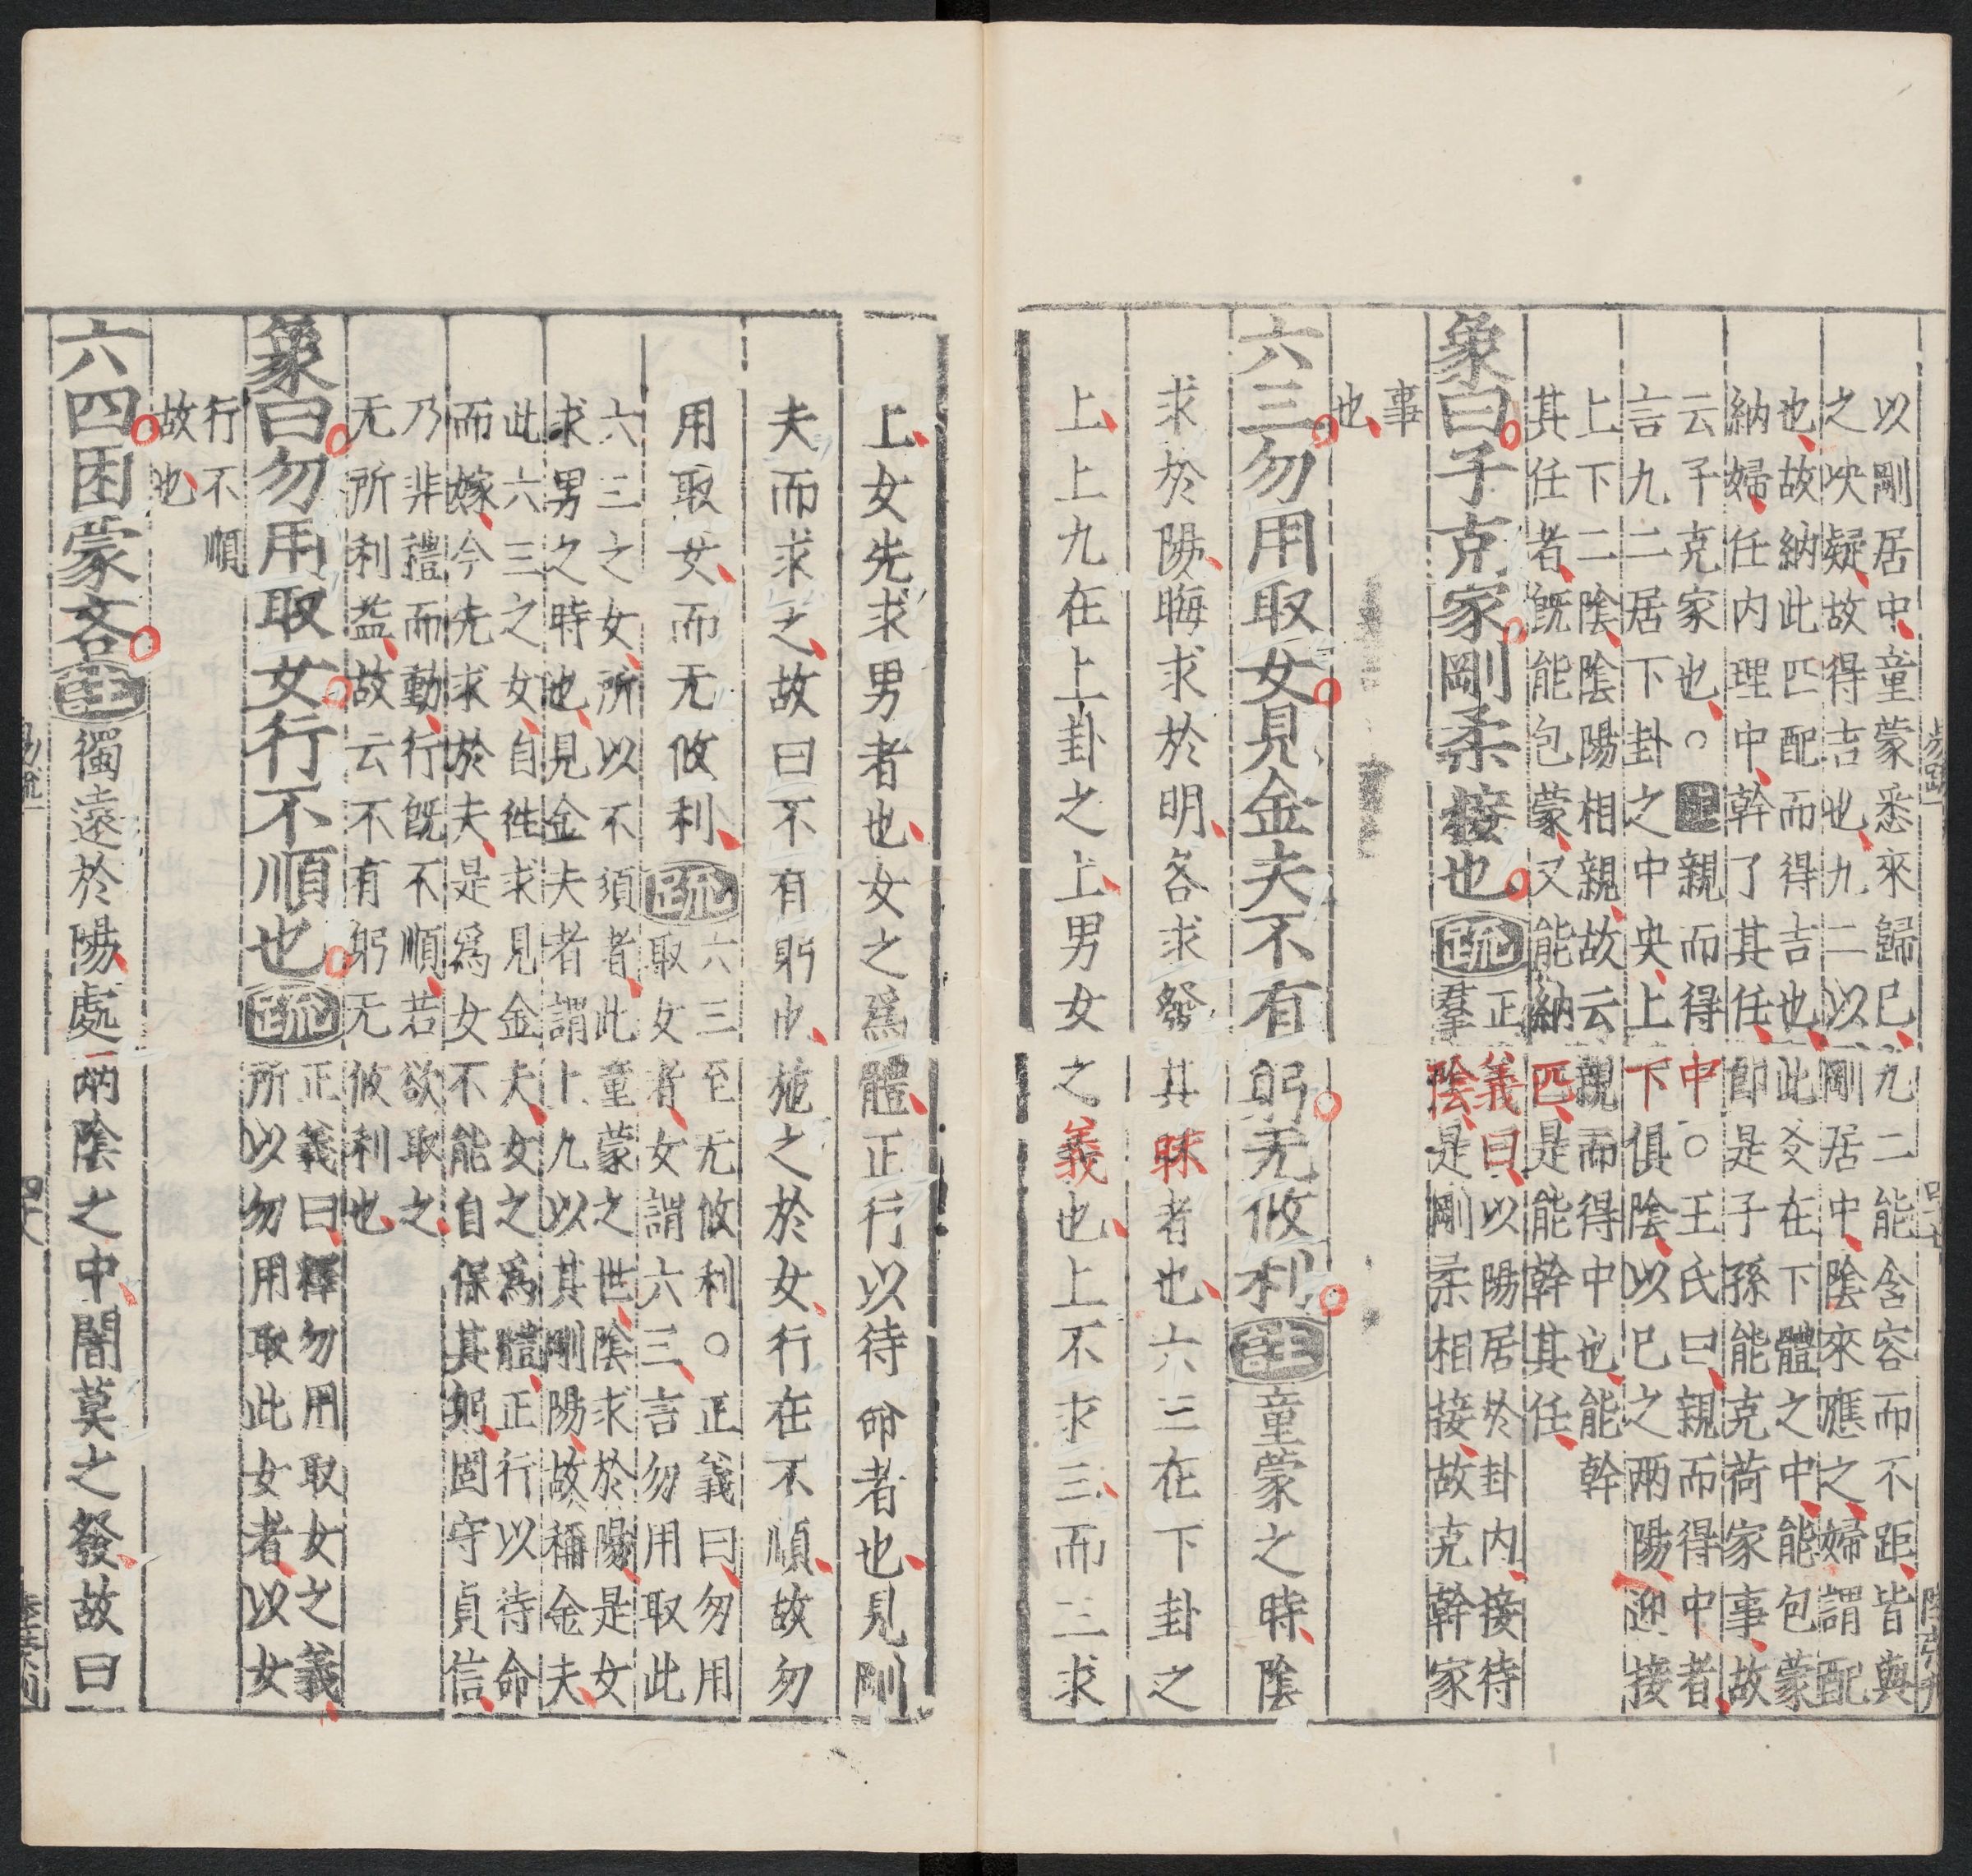 以剛居中童蒙悉來歸已九二能含容而不距皆與
之決疑故得吉也九二以剛居中陰來應之婦謂配
也故納此匹配而得吉也此爻在下體之中能包蒙
納婦任内理中幹了其任即是子孫能克荷家事故
云子克家也○注親而得中○王氏曰親而得中者
言九二居下卦之中央上下俱陰以已之兩陽迎接
上下二陰陰陽相親故云親而得中也能幹
其任者既能包蒙又能納匹是能幹其任
象曰子克家剛柔接也疏正義曰以陽居於卦内接待
羣陰是剛柔相接故克幹家
事
也
六三勿用取女見金夫不有躬无攸利注童蒙之時陰
求於陽晦求於明各求發其昧者也六三在下卦之
上上九在上卦之上男女之義也上不求三而三求
上女先求男者也女之爲體正行以待命者也見剛
夫而求之故曰不有躬也施之於女行在不順故勿
用取女而无攸利疏六三至无攸利○正義曰勿用
取女者女謂六三言勿用取此
六三之女所以不須者此童蒙之世陰求於陽是女
求男之時也見金夫者謂上九以其剛陽故稱金夫
此六三之女自徃求見金夫女之爲體正行以待命
而嫁今先求於夫是爲女不能自保其躬固守貞信
乃非禮而動行既不順若欲取之
无所利益故云不有躬无攸利也
象曰勿用取女行不順也疏正義曰釋勿用取女之義
所以勿用取此女者以女
行不順
故也
六四困蒙吝注獨遠於陽處兩陰之中闇莫之發故曰